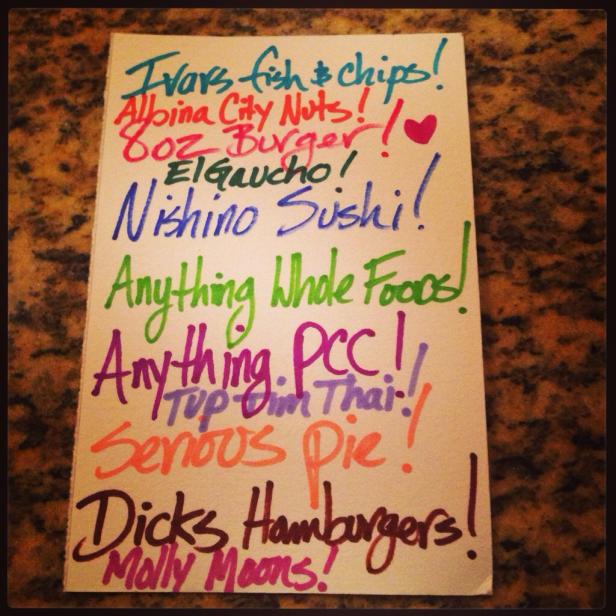 Ivars fish & chips!
Albina City Nuts!
8oz Burger!
El Gaucho!
Nishino Sushi!
Anything Whole Foods!
Anything PCC!
Tup Tim Thai!
Serious Pie!
Dicks Hamburgers!
Molly Moons!